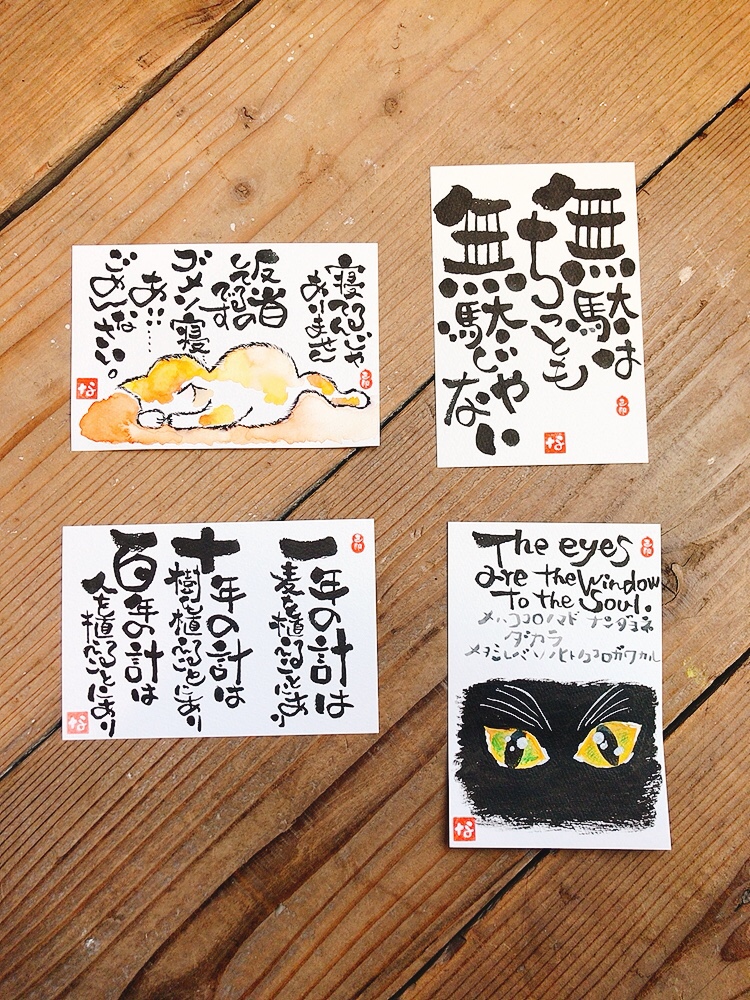 寝てるんじゃ
ありません
反省
してるの
です
ゴメン寝
あ!!……
ごめんなさい。
な
無駄は
ちっとも
無駄じゃ
ない
な
一年の計は
麦を植えることにあり
十年の計は
樹を植えることにあり
百年の計は
人を植えることにあり
な
The eyes
are the window
to the Soul.
メハココロノマド ナンダヨネ
ダカラ
メヲミレバソノヒトノココロガワカル
な